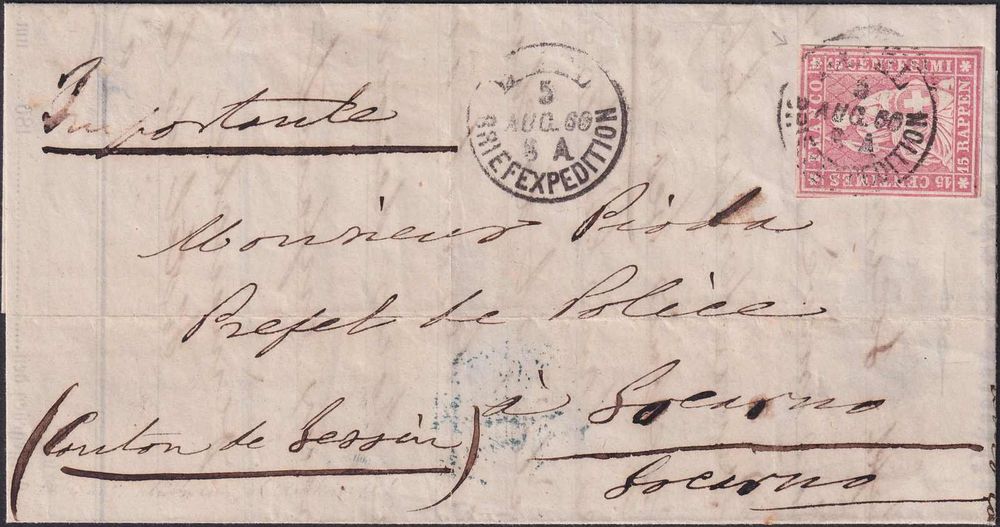 Importante
5
AUG. 60
5 A
BRIEFEXPEDITION
15 CENTESIMI
FRANCO
15 RAPPEN
15 CENTES
5
AUG. 60
A
Monsieur Pioda
Prefet de Police
à Locarno
(Canton de Tessin)
Locarno